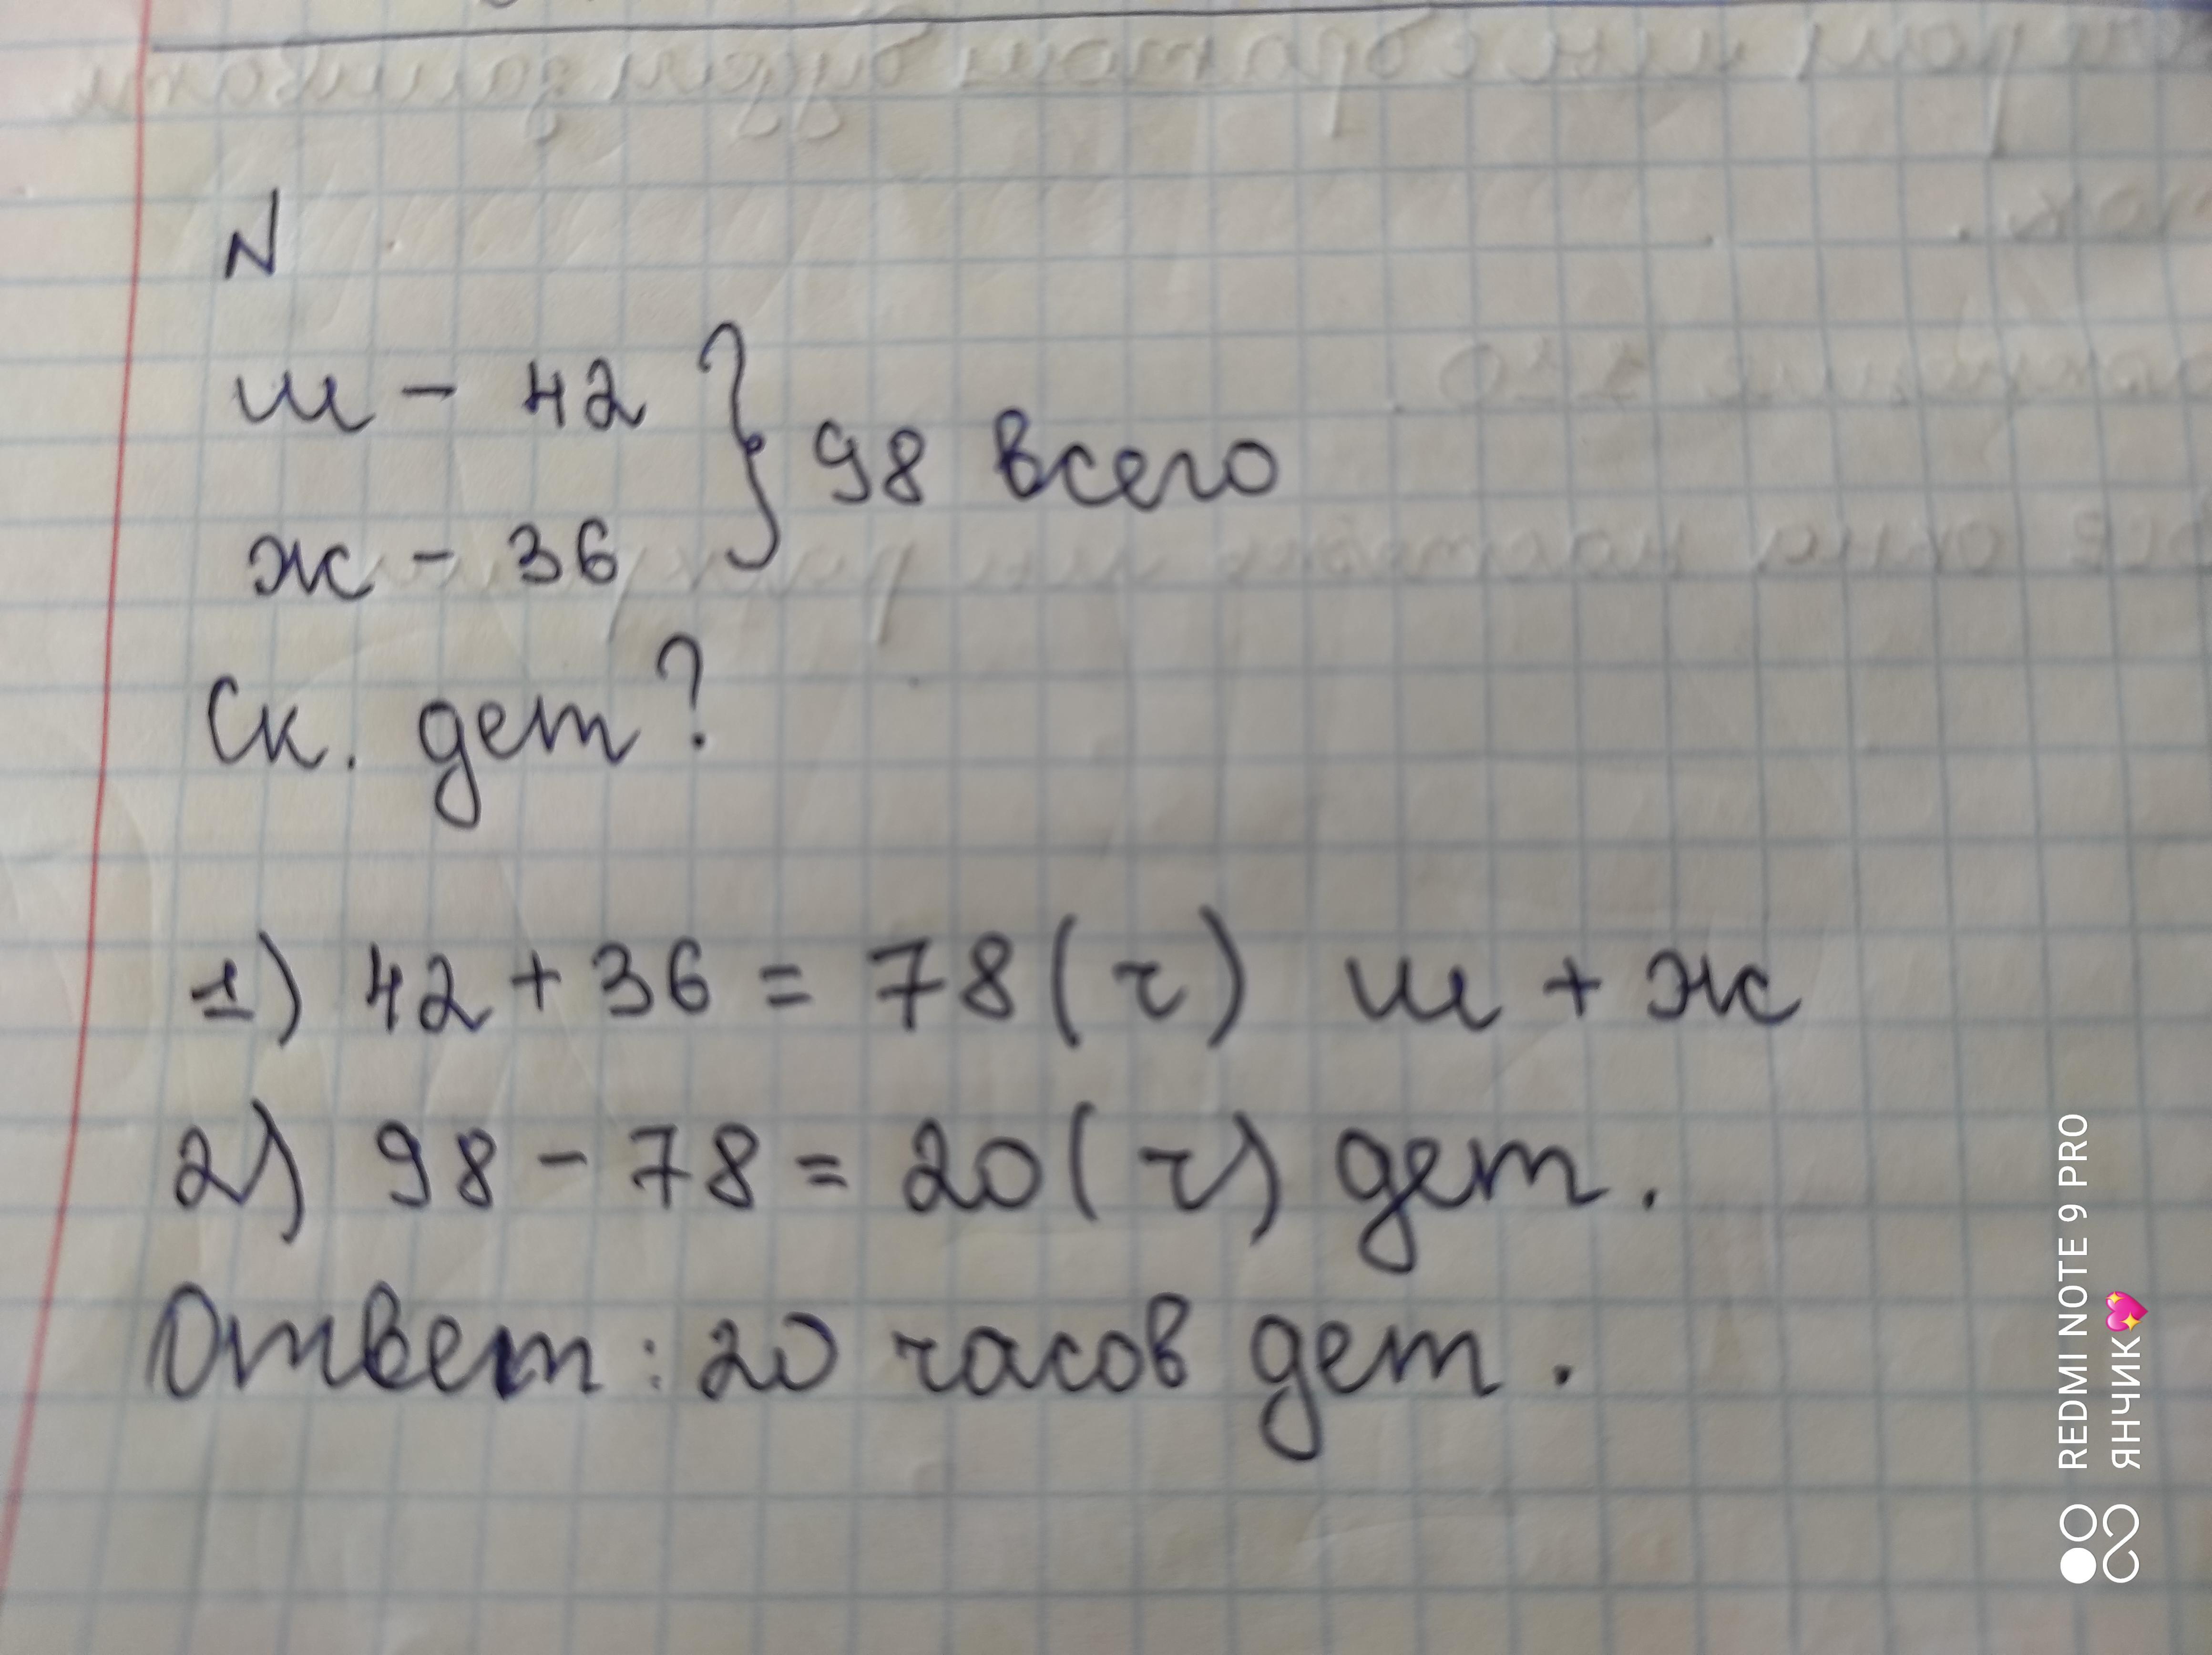 N
ш - 42
} 98 всего
ж - 36
Ск. дет?
1) 42 + 36 = 78 (ч) ш + ж
2) 98 - 78 = 20 (ч) дет.
Ответ: 20 часов дет.
REDMI NOTE 9 PRO
ЯНЧИК💖